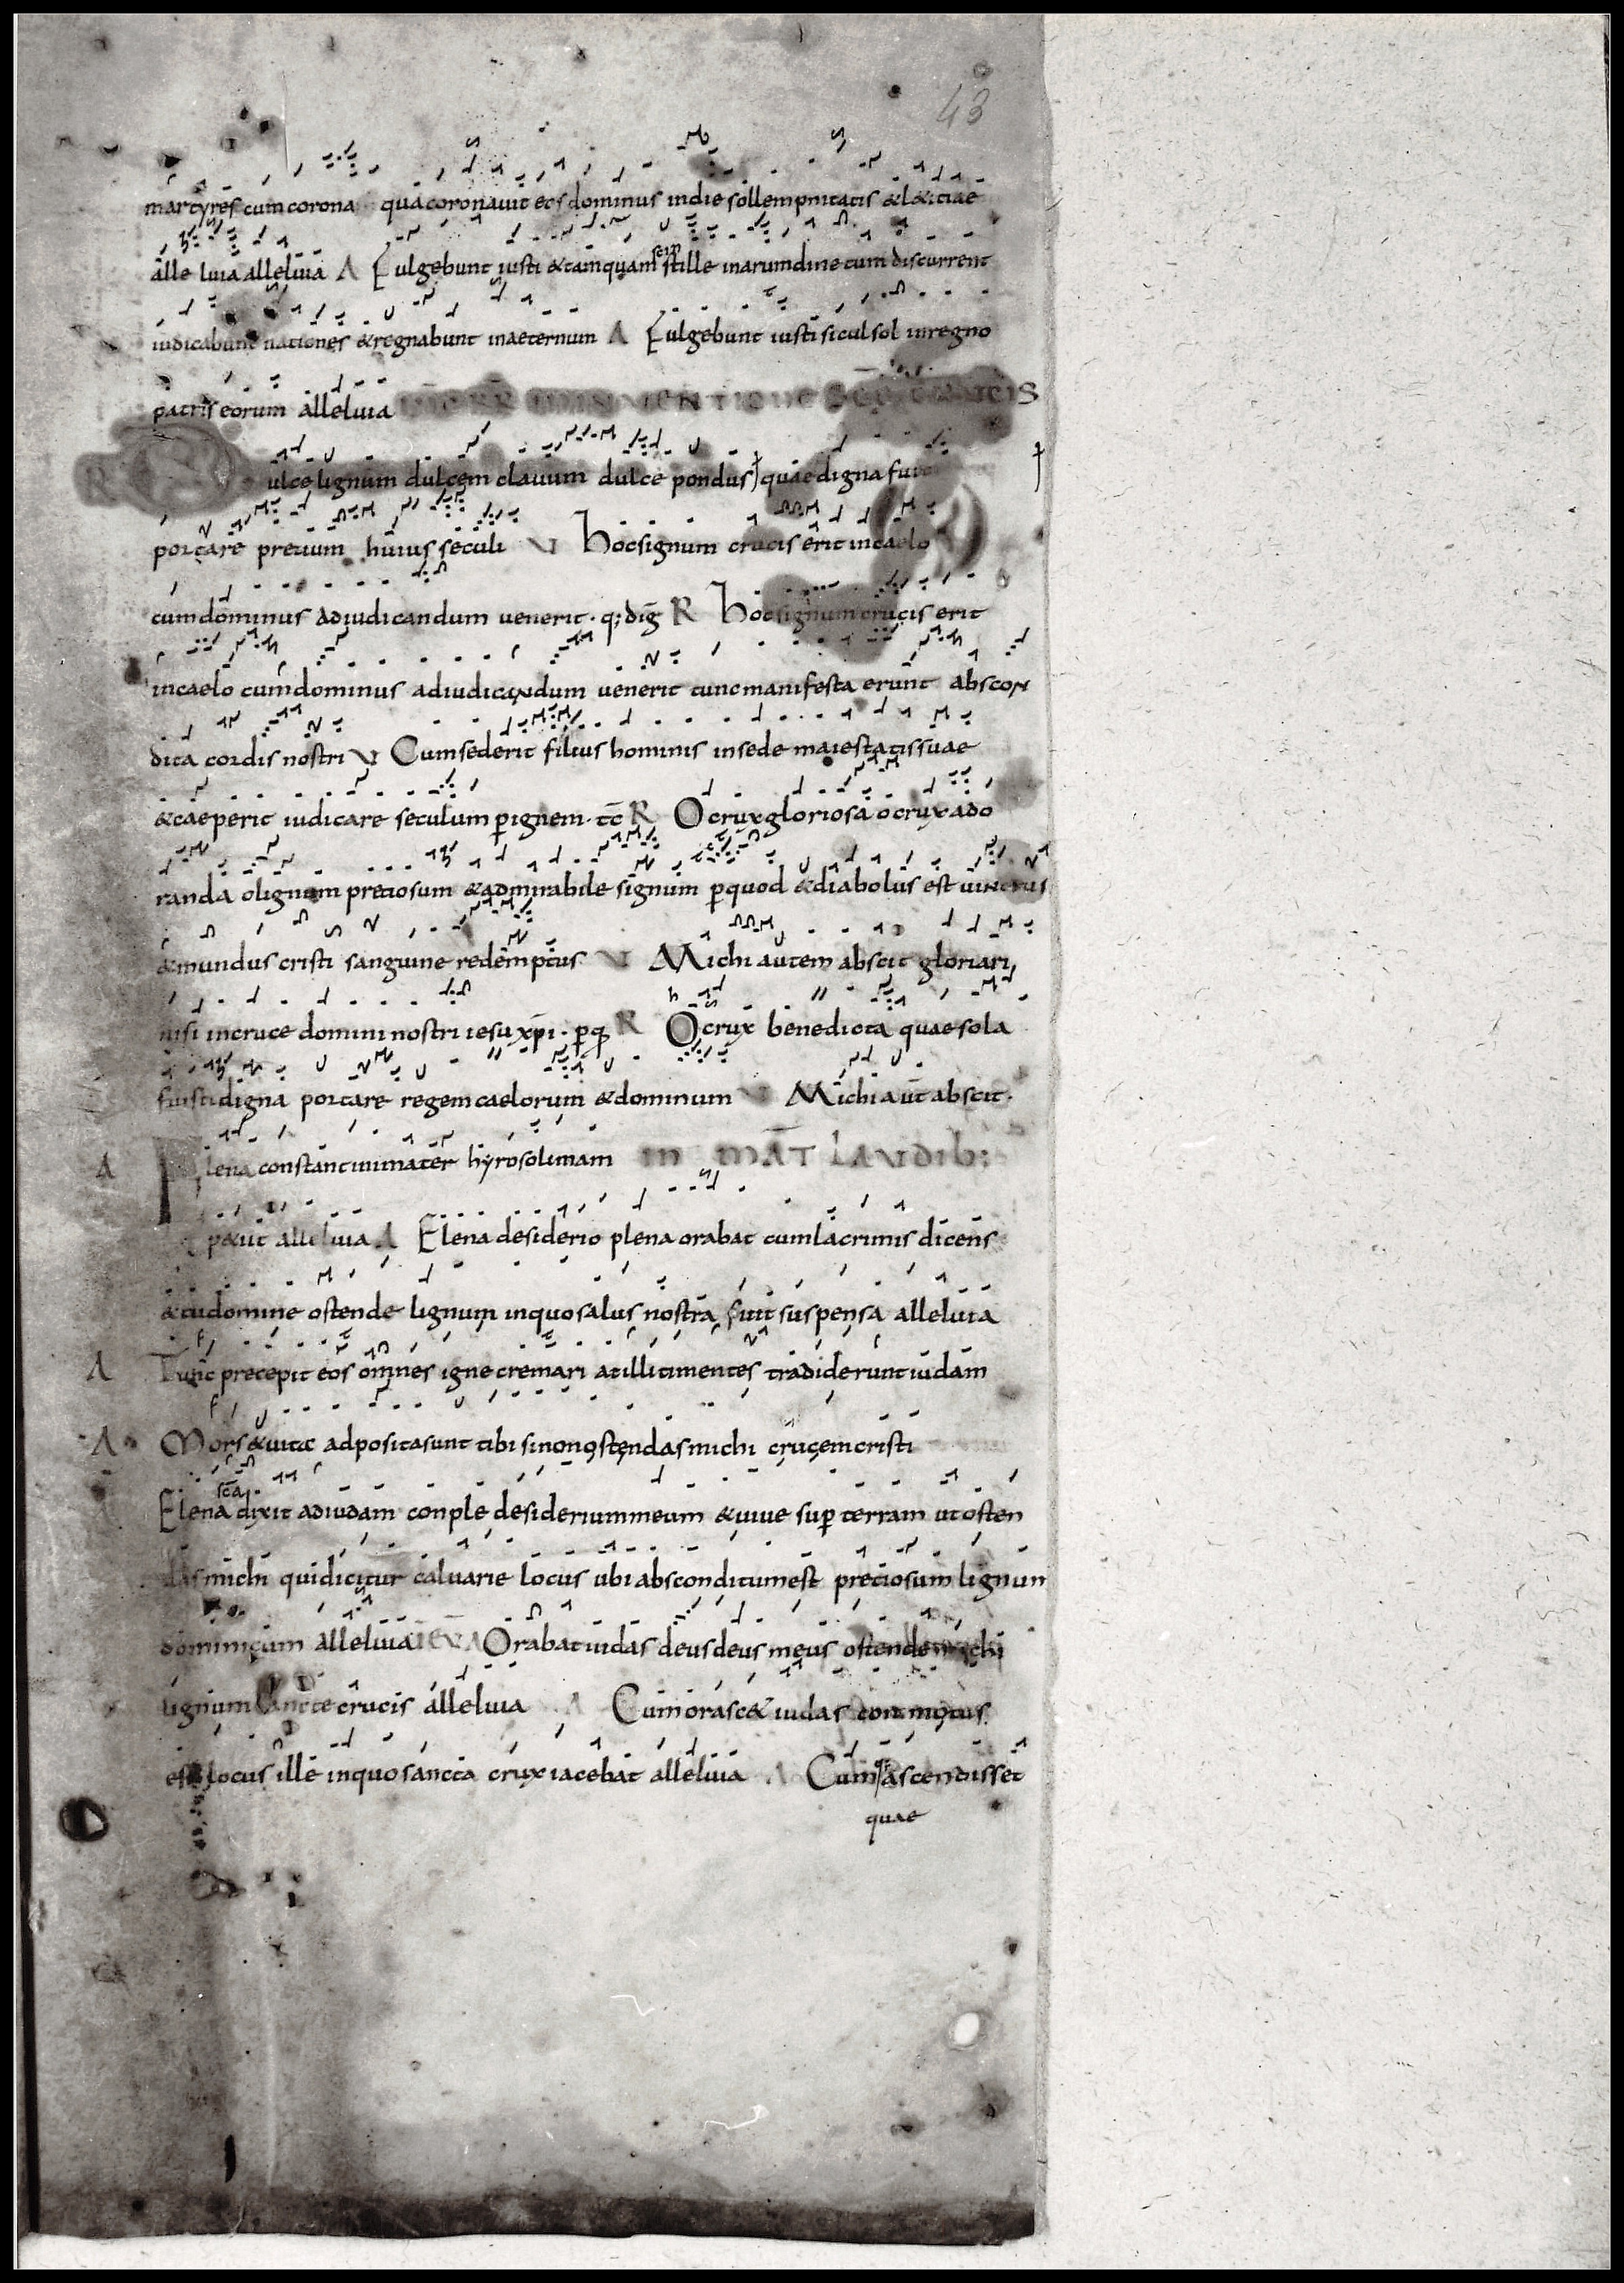 43
martyres cum corona qua coronauit eos dominus indie sollempnitatis &l&itiae
alleluia alleluia A Fulgebunt iusti &tamquam scintille inarundine cum discurrent
iudicabunt nationes &regnabunt inaeternum A Fulgebunt iusti sicut sol inregno
patris eorum alleluia
ulce lignum dulcem clauum dulce pondus quae digna
portare precium huius seculi V hoc signum crucis erit incaelo
cum dominus adiudicandum uenerit · q; dig̅ R hoc signum crucis erit
incaelo cum dominus adiudicandum uenerit tunc manifesta erunt abscon
dita cordis nostri V Cum sederit filius hominis insede maiestatis suae
&caeperit iudicare seculum p̱ ignem · tc̄ R O crux gloriosa o crux ado
randa o lignum preciosum &admirabile signum p̱quod &diabolus est uinctus
&mundus cristi sanguine redemptus V Michi autem absit gloriari
nisi incruce domini nostri iesu xp̄i · p̱q R O crux benedicta quae sola
fuisti digna portare regem caelorum &dominum V Michi aūt absit ·
A lena constantini mater hyrosolimam IN MĀT LAUDIB:
p&iit alleluia A Elena desiderio plena orabat cum lacrimis dicens
&tu domine ostende lignum inquo salus nostra fuit suspensa alleluia
A Tunc precepit eos omnes igne cremari at illi timentes tradiderunt iudam
A Mors &uita adposita sunt tibi si non ostendas michi crucem cristi
Elena sc̄a dixit adiudam conple desiderium meum &uiue sup̱ terram ut osten
das michi qui dicitur caluarie locus ubi absconditum est preciosum lignum
dominicum alleluia A Orabat iudas deus deus meus ostende michi
lignum sancte crucis alleluia A Cum orass& iudas commotus
est locus ille inquo sancta crux iacebat alleluia A Cum ascendisset
quae